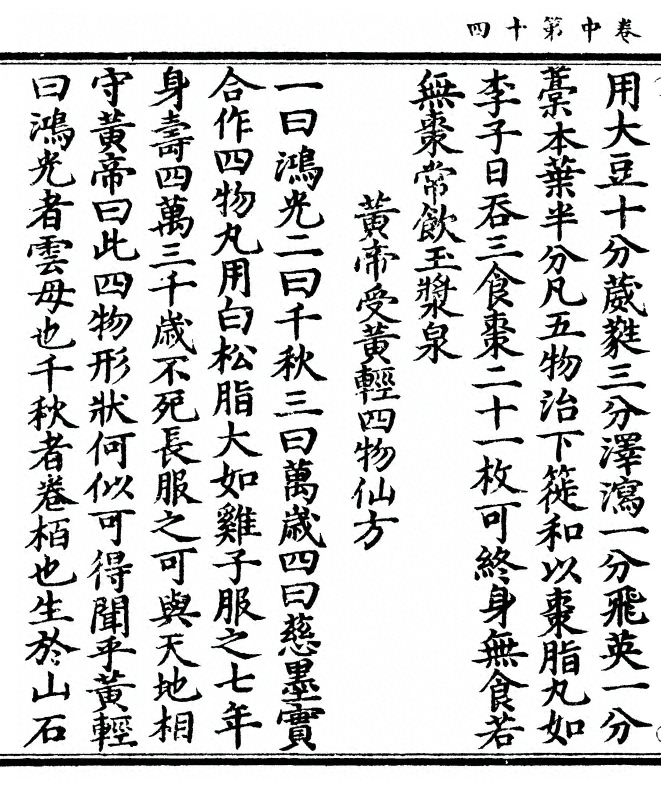 卷中第十四
用大豆十分葳蕤三分澤瀉一分飛英一分
藁本葉半分凡五物治下簁和以棗脂丸如
李子日吞三食棗二十一枚可終身無食若
無棗常飲玉漿泉
黃帝受黃輕四物仙方
一曰鴻光二曰千秋三曰萬歲四曰慈墨實
合作四物丸用白松脂大如雞子服之七年
身壽四萬三千歲不死長服之可與天地相
守黃帝曰此四物形狀何似可得聞乎黃輕
曰鴻光者雲母也千秋者卷栢也生於山石